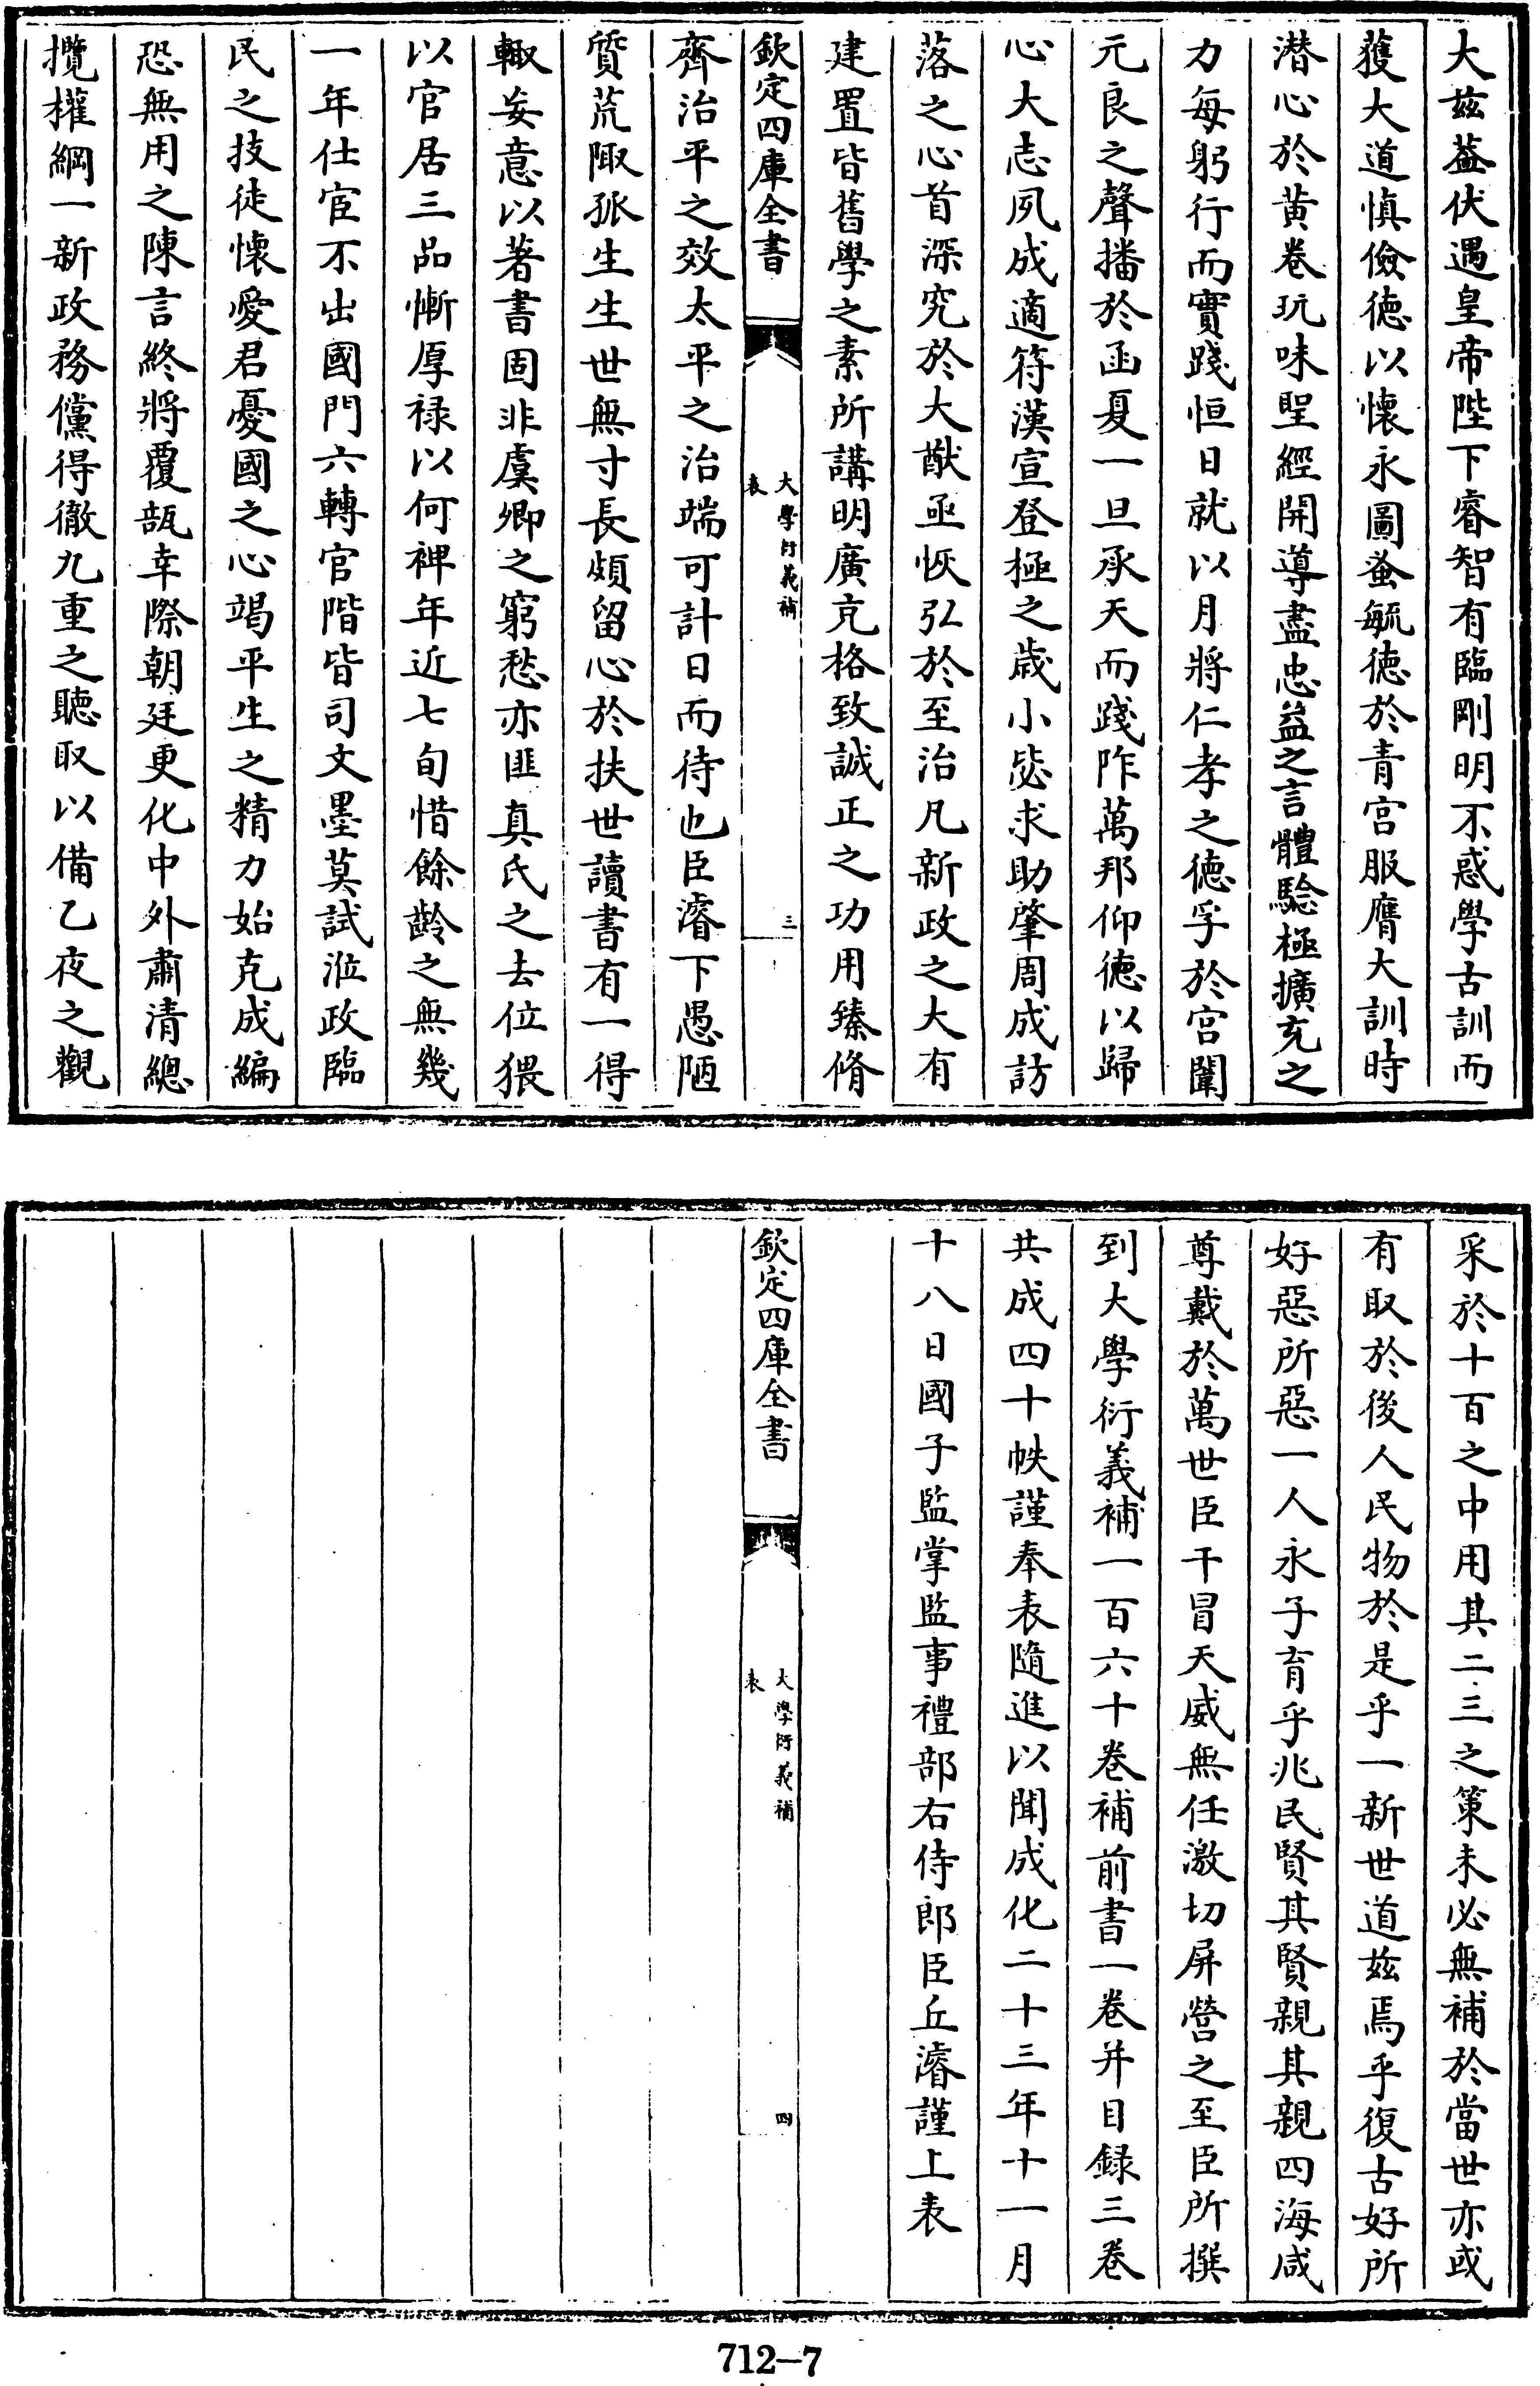 大兹葢伏遇皇帝陛下睿智有臨剛明不惑學古訓而
獲大道慎儉徳以懐永圖蚤毓徳於青宫服膺大訓時
潜心於黄卷玩味聖經開導盡忠益之言體騐極擴充之
力每躬行而實踐恒日就以月將仁孝之徳孚於宫闈
元良之聲播於函夏一旦承天而踐阼萬邦仰徳以歸
心大志夙成適符漢宣登極之歳小毖求助肇周成訪
落之心首深究於大猷亟恢弘於至治凡新政之大有
建置皆舊學之素所講明廣克格致誠正之功用臻脩
欽定四庫全書
大學衍義補
表
三
齊治平之效太平之治端可計日而待也臣濬下愚陋
質荒陬孤生生世無寸長頗留心於扶世讀書有一得
輙妄意以著書固非虞卿之窮愁亦匪真氏之去位猥
以官居三品慚厚禄以何裨年近七旬惜餘齡之無幾
一年仕宦不出國門六轉官階皆司文墨莫試涖政臨
民之技徒懐愛君憂國之心竭平生之精力始克成編
恐無用之陳言終將覆瓿幸際朝廷更化中外肅清總
攬權綱一新政務儻得徹九重之聽取以備乙夜之觀
采於十百之中用其二三之策未必無補於當世亦或
有取於後人民物於是乎一新世道兹焉乎復古好所
好惡所惡一人永子育乎兆民賢其賢親其親四海咸
尊戴於萬世臣干冒天威無任激切屏營之至臣所撰
到大學衍義補一百六十卷補前書一卷并目録三卷
共成四十帙謹奉表隨進以聞成化二十三年十一月
十八日國子監掌監事禮部右侍郎臣丘濬謹上表
欽定四庫全書
大學衍義補
表
四
712-7